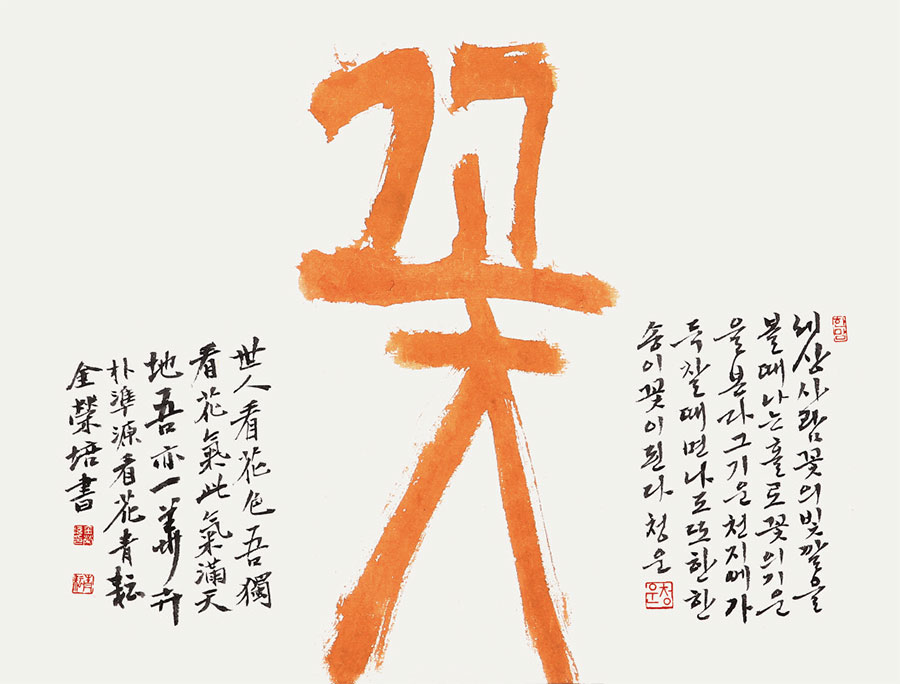 꽃
세상사람꽃의빛깔을
볼때나는홀로꽃의기운
을본다그기운천지에가
득찰때면나도또한한
송이꽃이된다 청운
청운
世人看花色吾獨
看花氣此氣滿天
地吾亦一華卉
朴準源看花青耘
金榮培書